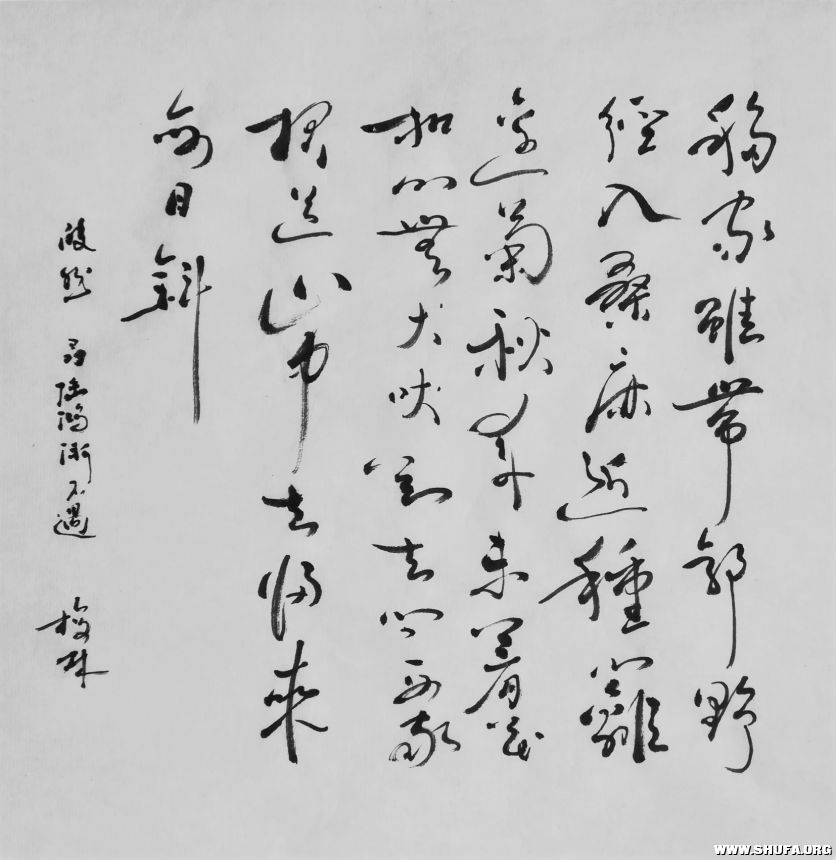 移家雖帶郭野
徑入桑麻近種籬
邊菊秋來未著花
扣門無犬吠欲去問西家
報道山中去歸來
每日斜
皎然 尋陸鴻漸不遇
WWW.SHUFA.ORG